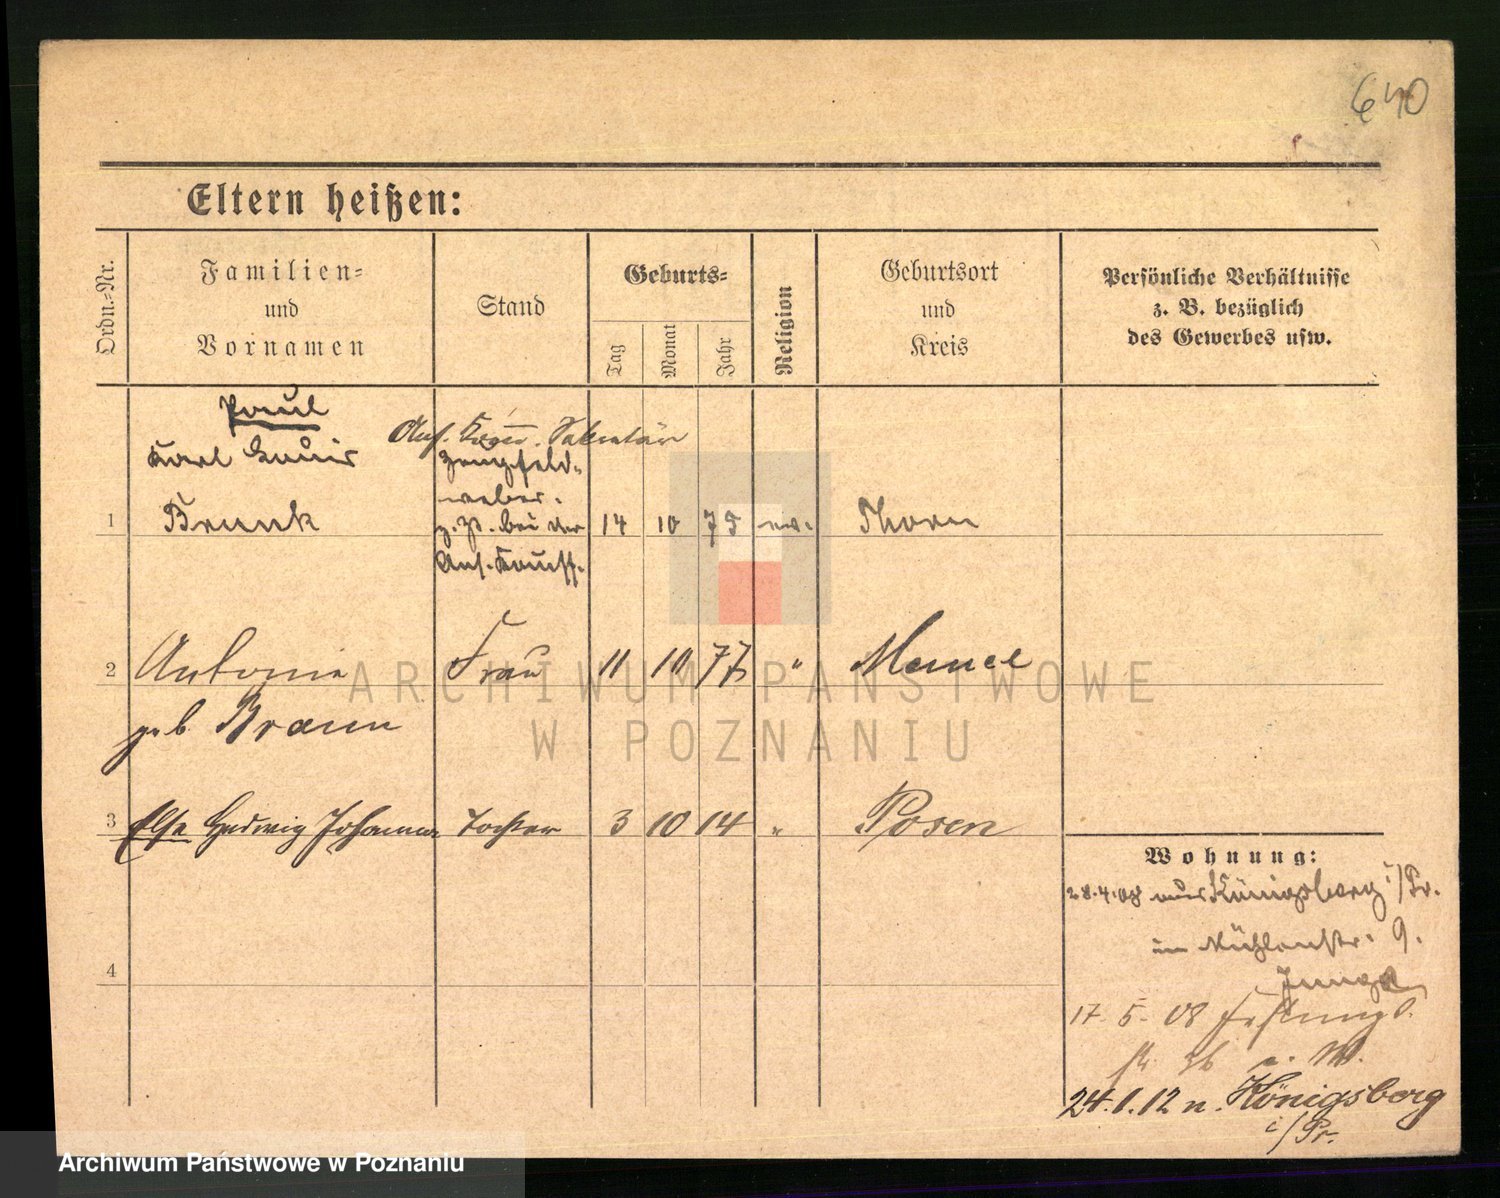 640
Eltern heißen:
Ordn.-Nr.
Familien-
und
Vornamen
Stand
Geburts-
Tag
Monat
Jahr
Religion
Geburtsort
und
Kreis
Persönliche Verhältnisse
z. B. bezüglich
des Gewerbes usw.
Paul
Karl Louis
Ans. Sekretär
Zeugfeld-
webel.
1 Brunk z. Zt. bei der 14 10 75 ev. Thorn
Ans.
2 Antonie Frau 11 10 77 " Memel
geb. Braun
3 Else Hedwig Johanna Tochter 3 10 14 " Posen
Wohnung:
28.4.08 aus Königsberg i/Pr.
in Mühlenstr. 9.
4
17.5.08
24.1.12 n. Königsberg
i/Pr.
ARCHIWUM PAŃSTWOWE
W POZNANIU
Archiwum Państwowe w Poznaniu